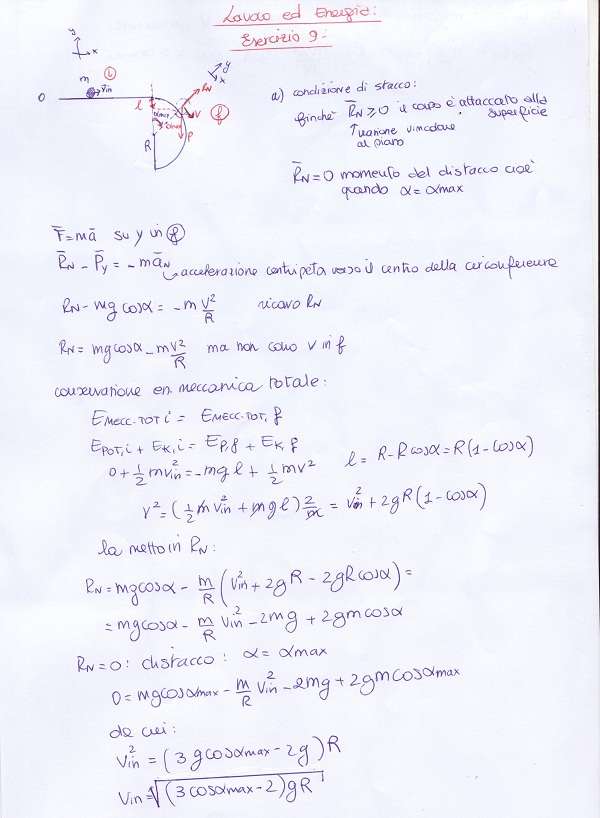 Lavoro ed Energia:
Esercizio 9:
y
x
m
i
Vin
O
l
αmax
αmax
R
RN
V
P
f
y
x
a) condizione di stacco:
finché R̄N ≥ 0 il corpo è attaccato alla superficie
↑ reazione vincolare
al piano
R̄N = 0 momento del distacco cioè
quando α = αmax
F̄ = mā su y in f
R̄N - P̄y = - m āN
↳ accelerazione centripeta verso il centro della circonferenza
RN - mg cosα = - m V²/R ricavo RN
RN = mg cosα - m V²/R ma non cono V in f
conservazione en. meccanica totale:
EMECC.TOT i = EMECC.TOT, f
EPOT,i + EK,i = EP,f + EK,f
0 + 1/2 m Vin² = - mgl + 1/2 mv² l = R - R cosα = R (1 - cosα)
V² = (1/2 m Vin² + mgl) 2/m = Vin² + 2gR (1 - cosα)
la metto in RN:
RN = mg cosα - m/R (Vin² + 2gR - 2gR cosα) =
= mg cosα - m/R Vin² - 2mg + 2gm cosα
RN = 0: distacco: α = αmax
0 = mg cosαmax - m/R Vin² - 2mg + 2gm cosαmax
da cui:
Vin² = (3g cosαmax - 2g) R
Vin = √(3 cosαmax - 2) gR